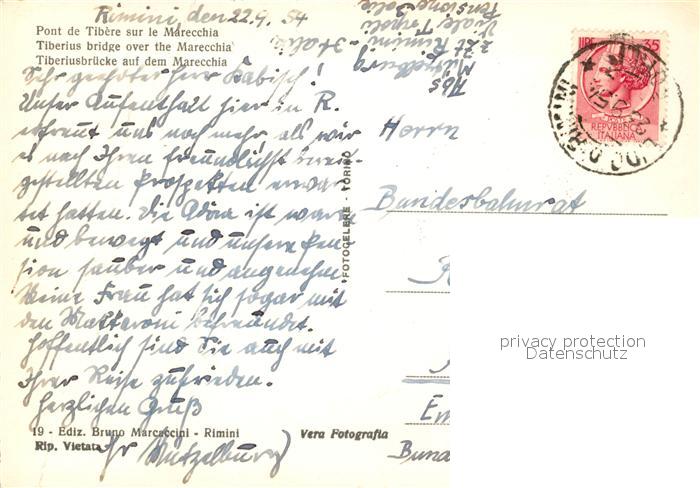 Rimini, den 22.9.54
Pont de Tibère sur le Marecchia
Tiberius bridge over the Marecchia
Tiberiusbrücke auf dem Marecchia
Sehr geehrter Herr Babisch!
Unser Aufenthalt hier in R.
erfreut uns noch mehr, als wir
es nach Ihren freundlichst bereit-
gestellten Prospekten erwar-
tet hatten. Die Adria ist warm
und bewegt und unsere Pen-
sion sauber und angenehm
Meine Frau hat sich sogar mit
den Makkaroni befreundet.
Hoffentlich sind Sie auch mit
Ihrer Reise zufrieden.
Herzlichen Gruß
Ihr Mützelburg
19 - Ediz. Bruno Marcaccini - Rimini
Rip. Vietata
Vera Fotografia
"FOTOCELERE - TORINO
Abs Mützelburg
z Zt Rimini - Italia
Viale Tripoli
Pensione
LIRE 35
POSTE
REPVBBLICA
ITALIANA
Herrn
Bundesbahnrat
Em
Bunde
privacy protection
Datenschutz